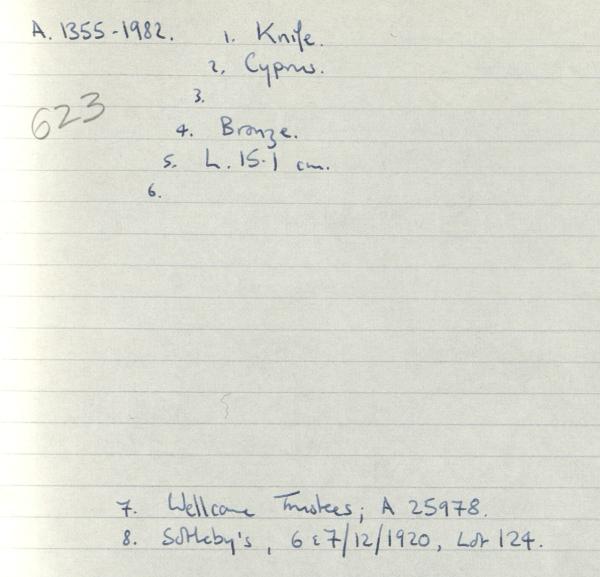 A. 1355-1982. 1. Knife.
2. Cyprus.
3.
623
4. Bronze.
5. L. 15.1 cm.
6.
7. Wellcome Trustees; A 25978.
8. Sotheby's, 6 & 7/12/1920, Lot 124.